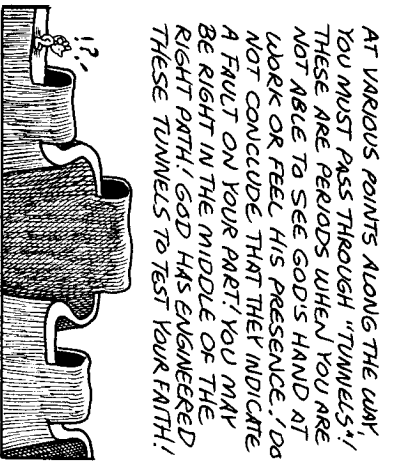 AT VARIOUS POINTS ALONG THE WAY,
YOU MUST PASS THROUGH "TUNNELS"!
THESE ARE PERIODS WHEN YOU ARE
NOT ABLE TO SEE GOD'S HAND AT
WORK OR FEEL HIS PRESENCE! DO
NOT CONCLUDE THAT THEY INDICATE
A FAULT ON YOUR PART! YOU MAY
BE RIGHT IN THE MIDDLE OF THE
RIGHT PATH! GOD HAS ENGINEERED
THESE TUNNELS TO TEST YOUR FAITH!
!?!